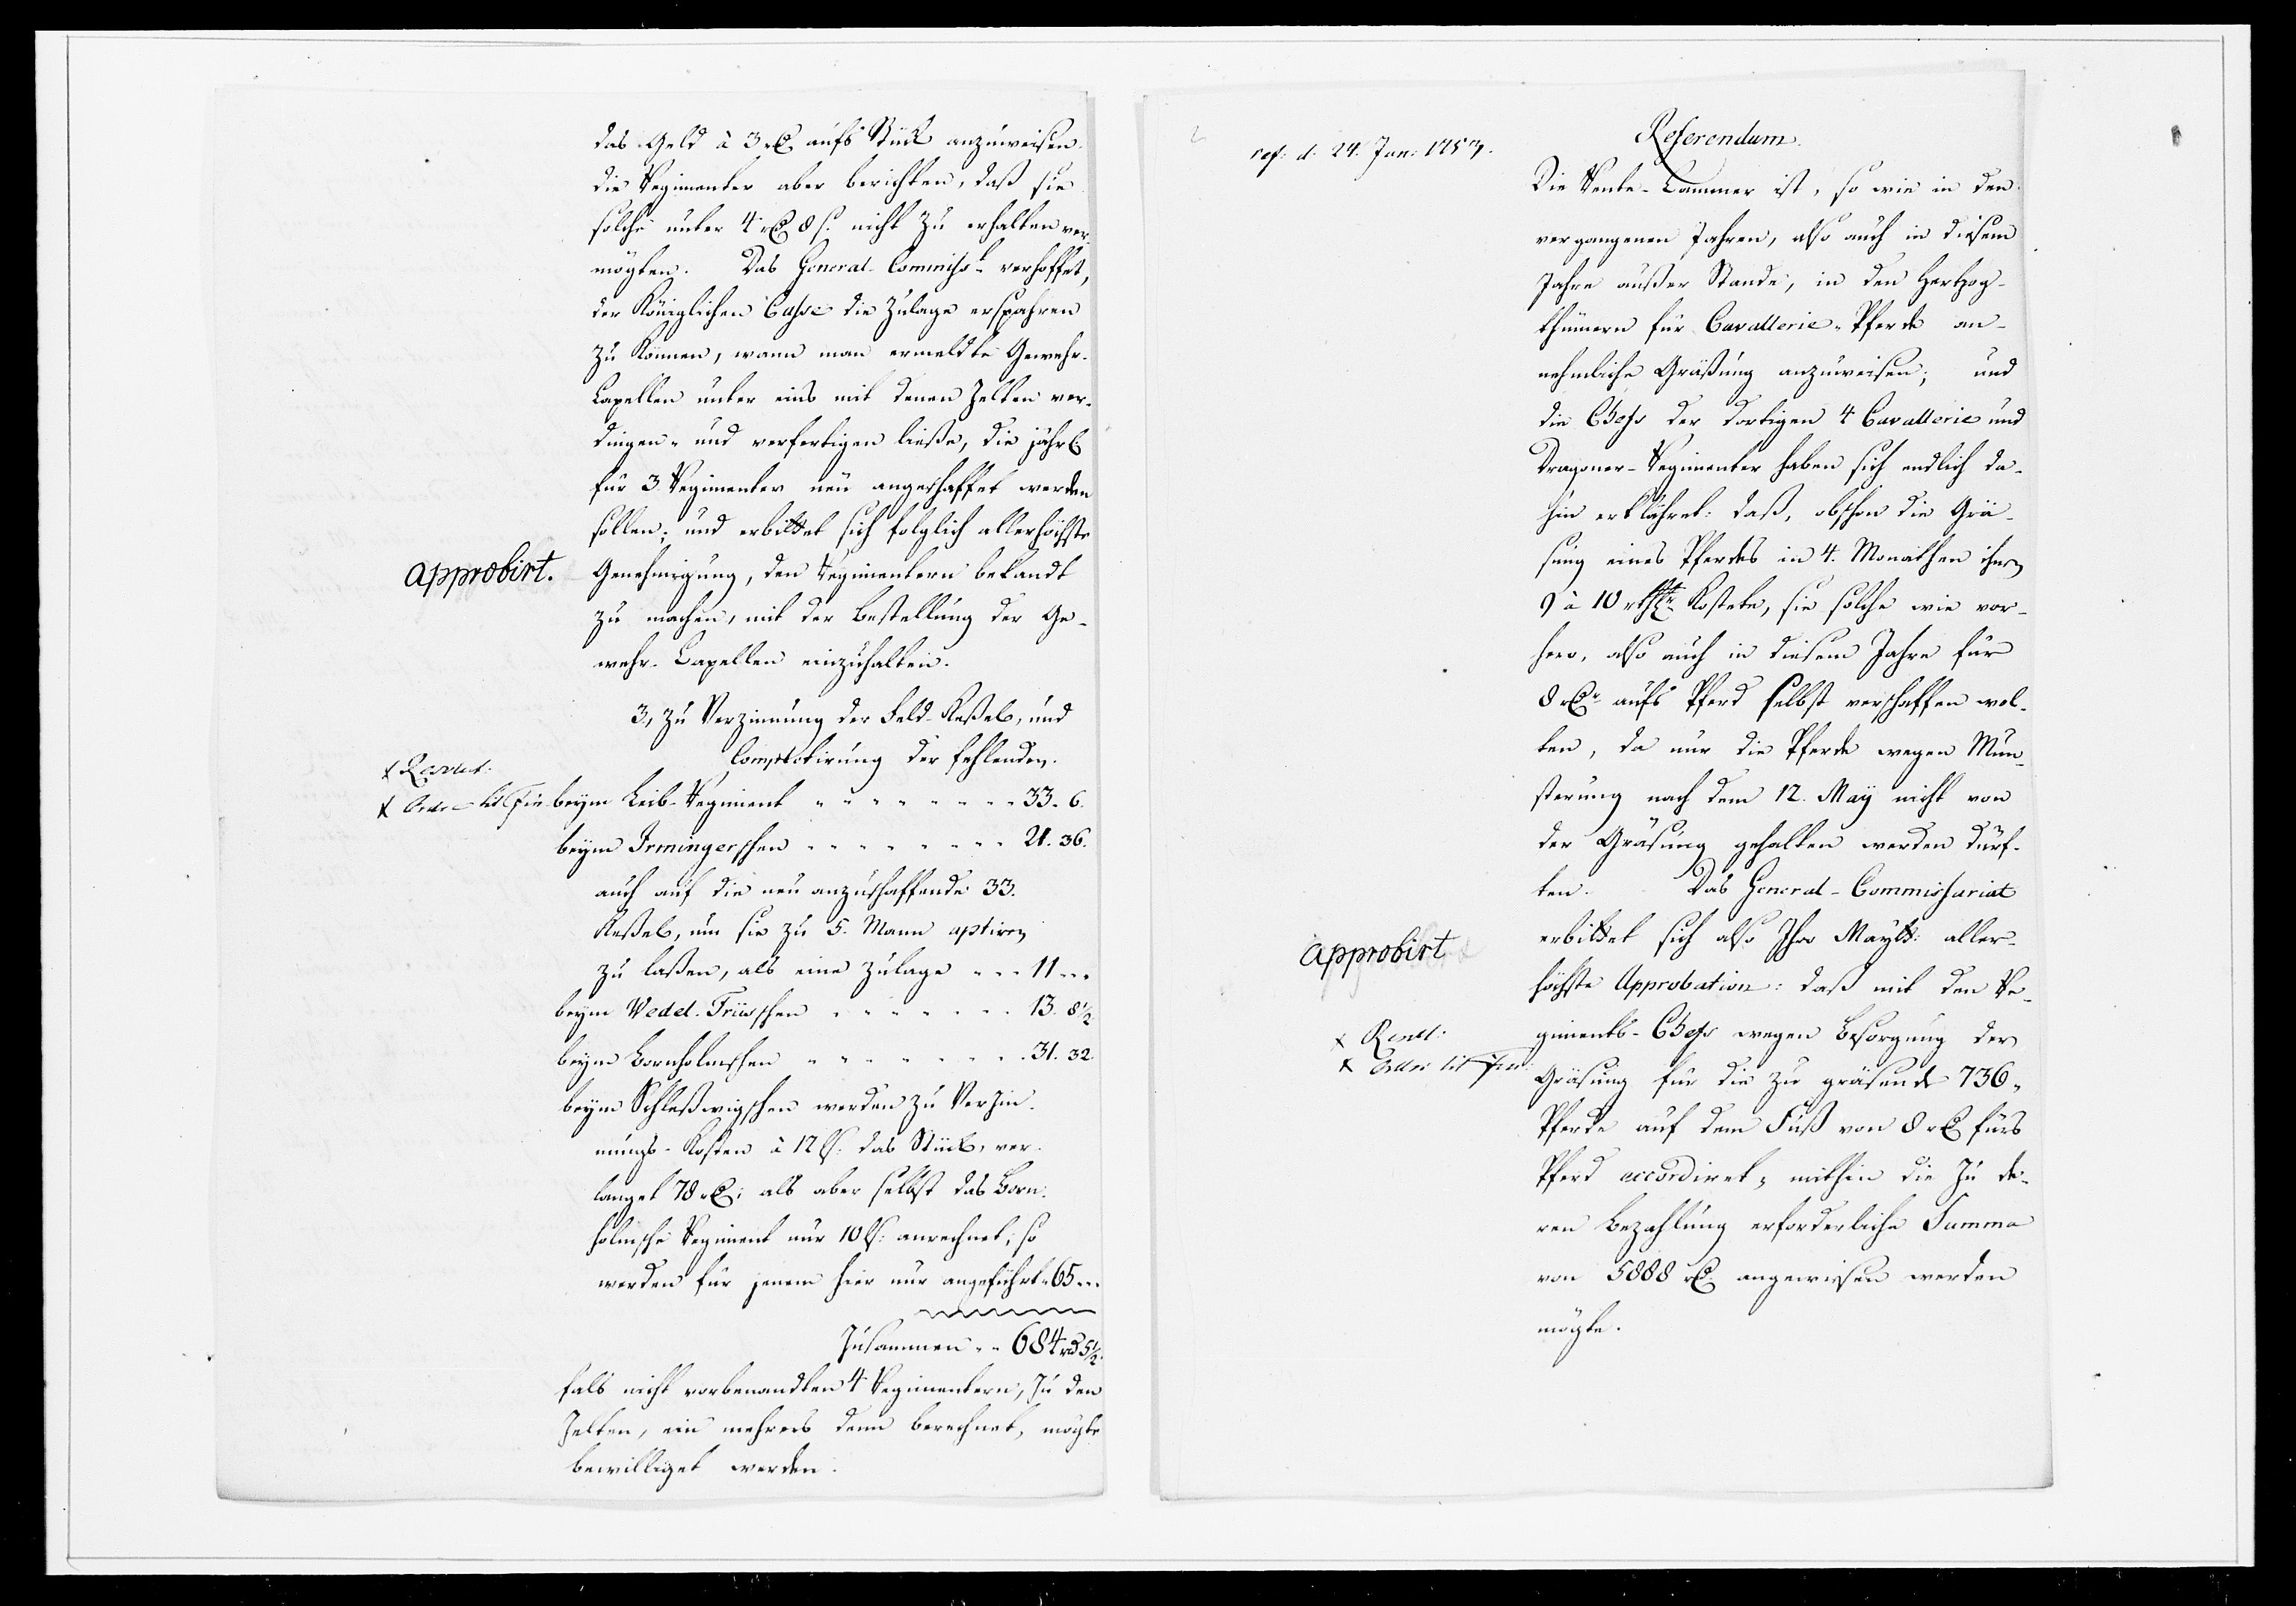 das Geld à 3 r aufs Stück anzuweisen.
die Regimenter aber berichten, daß sie
solche unter 4 r 8 s. nicht zu erhalten ver-
mögten. Das General-Commiss.t verhoffet,
der Königlichen Casse die Zulage erspahren
zu können, wann man ermeldte Gewehr-
Capellen unter eins mit denen Zelten ver-
dingen- und verfertigen ließe, die jährl
für 3 Regimenter neu angeschaffet werden
sollen; und erbittet sich folglich allerhöchste
approbirt.
Genehmigung, den Regimentern bekandt
zu machen, mit der Bestellung der Ge-
wehr-Capellen einzuhalten.
3, zu Verzinnung der Feld-Keßels, und
Completirung der fehlenden.
x
x Ordre
beym Leib-Regiment 33. 6.
beym Irmingerschen 21. 36.
auch auf die neu anzuschaffende 33.
Keßels, um sie zu 5. Mann aptiren
zu laßen, als eine Zulage 11
beym Wedel-Friisschen 13. 8½
beym Bornholmschen 31. 32.
beym Schleßwigschen werden zu Verzin-
nungs-Kosten à 12 ß. das Stück, ver-
langet 78 r; als aber selbst das Born-
holmsche Regiment nur 10 ß. anrechnet, so
werden für jenem hier nur angeführt 65
Zusammen 684 r 5½.
fals nicht vorbenandten 4 Regimentern, zu den
Zelten, ein mehrers denn berechnet, mögte
bewilliget werden.
ref: d. 24. Jan: 1753.
Referendum.
Die Rente-Cammer ist, so wie in den
vergangenen Jahren, also auch in diesem
Jahre außer Stande, in den Hertzog-
thümern für Cavallerie-Pferde an-
nehmliche Gräßung anzuweisen; und
die Chefs der dortigen 4 Cavallerie und
Dragoner-Regimenter haben sich endlich da-
hin erklähret: daß, obschon die Grä-
sung eines Pferdes in 4. Monathen ihnen
9 à 10 rthlr kostete, sie solche wie vor-
hero, also auch in diesem Jahre für
8 r aufs Pferd selbst verschaffen wol-
ten, da nur die Pferde wegen Mun-
sterung nach dem 12. May nicht von
der Gräsung gehalten werden dürf-
ten. Das General-Commissariat
erbittet sich also Ihro Maytt: aller-
approbirt
höchste Approbation: daß mit den Re-
giments-Chefs wegen Besorgung der
x
x Ordre
Gräsung für die zu gräsende 736,
Pferde auf dem Fuß von 8 r fürs
Pferd accordiret, mithin die zu de-
ren Bezahlung erforderliche Summa
von 5888 r angewiesen werden
mögte.